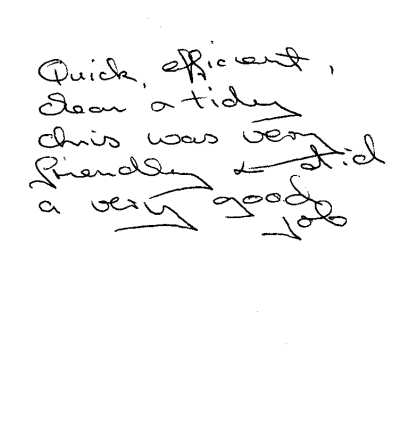 Quick, efficient,
clean & tidy
chris was very
friendly & did
a very good
job